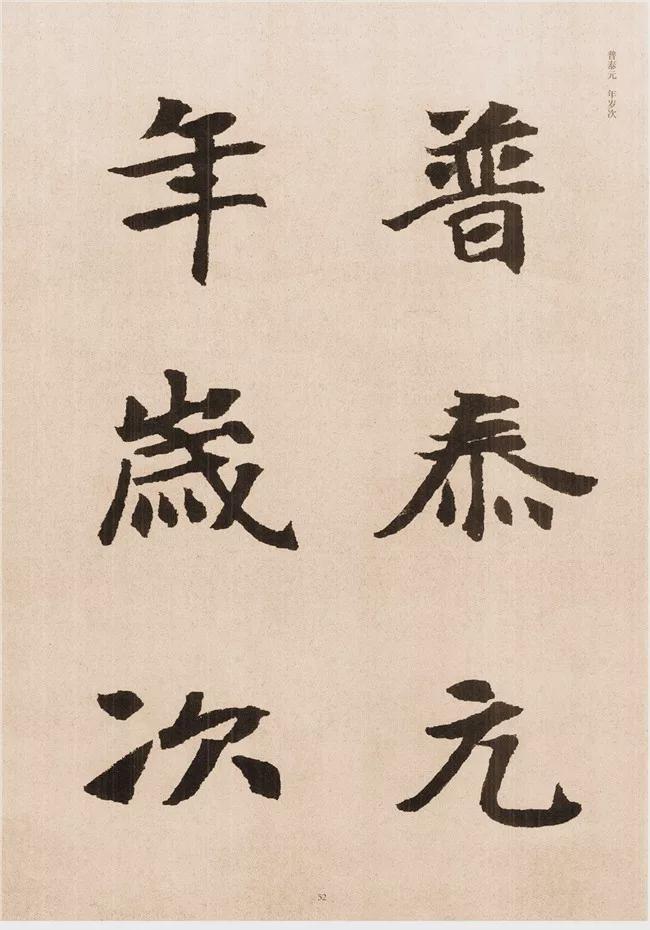 普泰元 年岁次
普泰元
年歲次
52